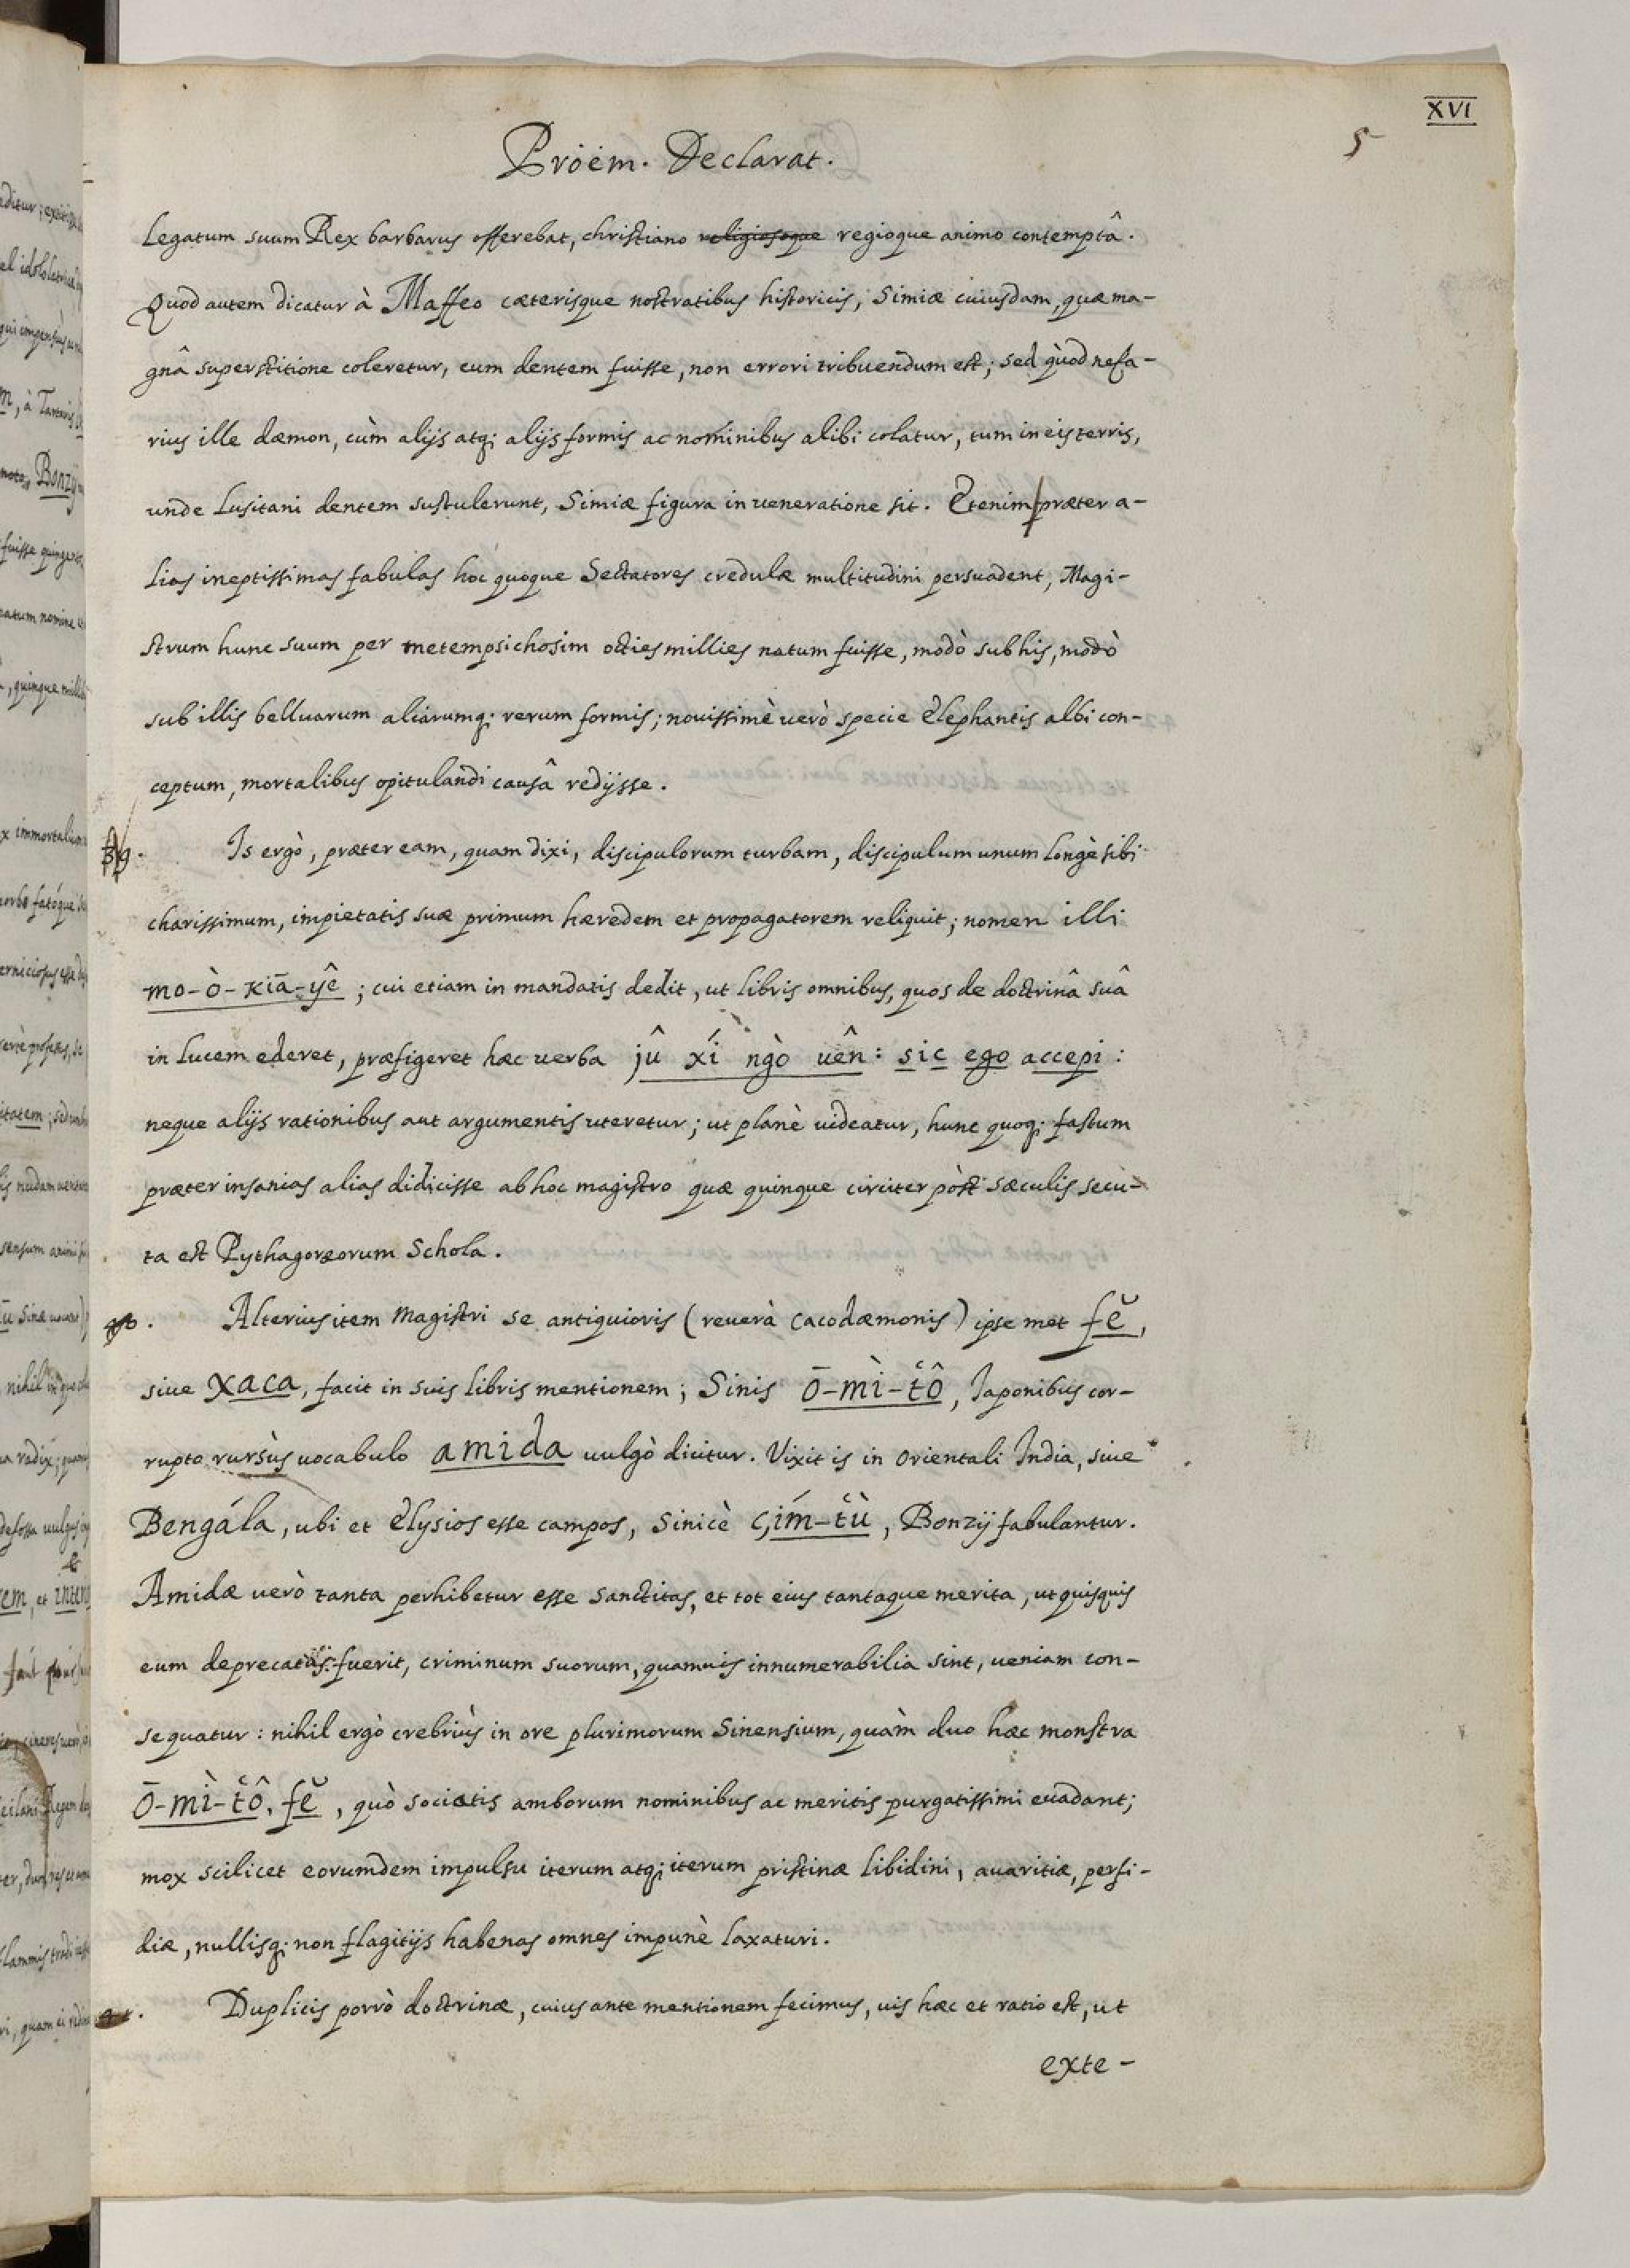 XVI
5
Proëm. Declarat.
legatum suum Rex barbarus offerebat, christiano religiosoque regioque animo contemptâ.
Quod autem dicatur à Maffeo cæterisque nostratibus historicis, Simiæ cuiusdam, quæ ma-
gnâ superstitione coleretur, eum dentem fuisse, non errori tribuendum est; sed quòd nefa-
rius ille dæmon, cùm alijs atq; alijs formis ac nominibus alibi colatur, tum in eis terris,
unde Lusitani dentem sustulerunt, Simiæ figura in ueneratione sit. Etenim præter a-
lias ineptissimas fabulas hoc quoque Sectatores credulæ multitudini persuadent, Magi-
strum hunc suum per metempsichosim octies millies natum fuisse, modò sub his, modò
sub illis belluarum aliarumq; rerum formis; nouissimè uerò specie Elephantis albi con-
ceptum, mortalibus opitulandi causâ redijsse.
Is ergò, præter eam, quam dixi, discipulorum turbam, discipulum unum longè sibi
charissimum, impietatis suæ primum hæredem et propagatorem reliquit; nomen illi
mo-ò-kiā-yê; cui etiam in mandatis dedit, ut libris omnibus, quos de doctrinâ suâ
in lucem ederet, præfigeret hæc uerba jû xí ngò uên: sic ego accepi:
neque alijs rationibus aut argumentis uteretur; ut planè uideatur, hunc quoq; fastum
præter insanias alias didicisse ab hoc magistro quæ quinque circiter pòst sæculis secu-
ta est Pythagoreorum Schola.
Alterius item magistri se antiquioris (reuerà cacodæmonis) ipse met fĕ,
siue xaca, facit in suis libris mentionem; Sinis ō-mì-t̔ô, Japonibus cor-
rupto rursùs uocabulo amida uulgò dicitur. Vixit is in orientali India, siue
Bengála, ubi et Elysios esse campos, Sinicè çím-t̔ù, Bonzij fabulantur.
Amidæ uerò tanta perhibetur esse sanctitas, et tot eius tantaque merita, ut quisquis
eum deprecatus fuerit, criminum suorum, quamuis innumerabilia sint, ueniam con-
sequatur: nihil ergò crebriùs in ore plurimorum Sinensium, quàm duo hæc monstra
ō-mì-t̔ô, fĕ, quò sociatis amborum nominibus ac meritis purgatissimi euadant;
mox scilicet eorumdem impulsu iterum atq; iterum pristinæ libidini, auaritiæ, perfi-
diæ, nullisq; non flagitijs habenas omnes impunè laxaturi.
Duplicis porrò doctrinæ, cuius ante mentionem fecimus, uis hæc et ratio est, ut
exte-